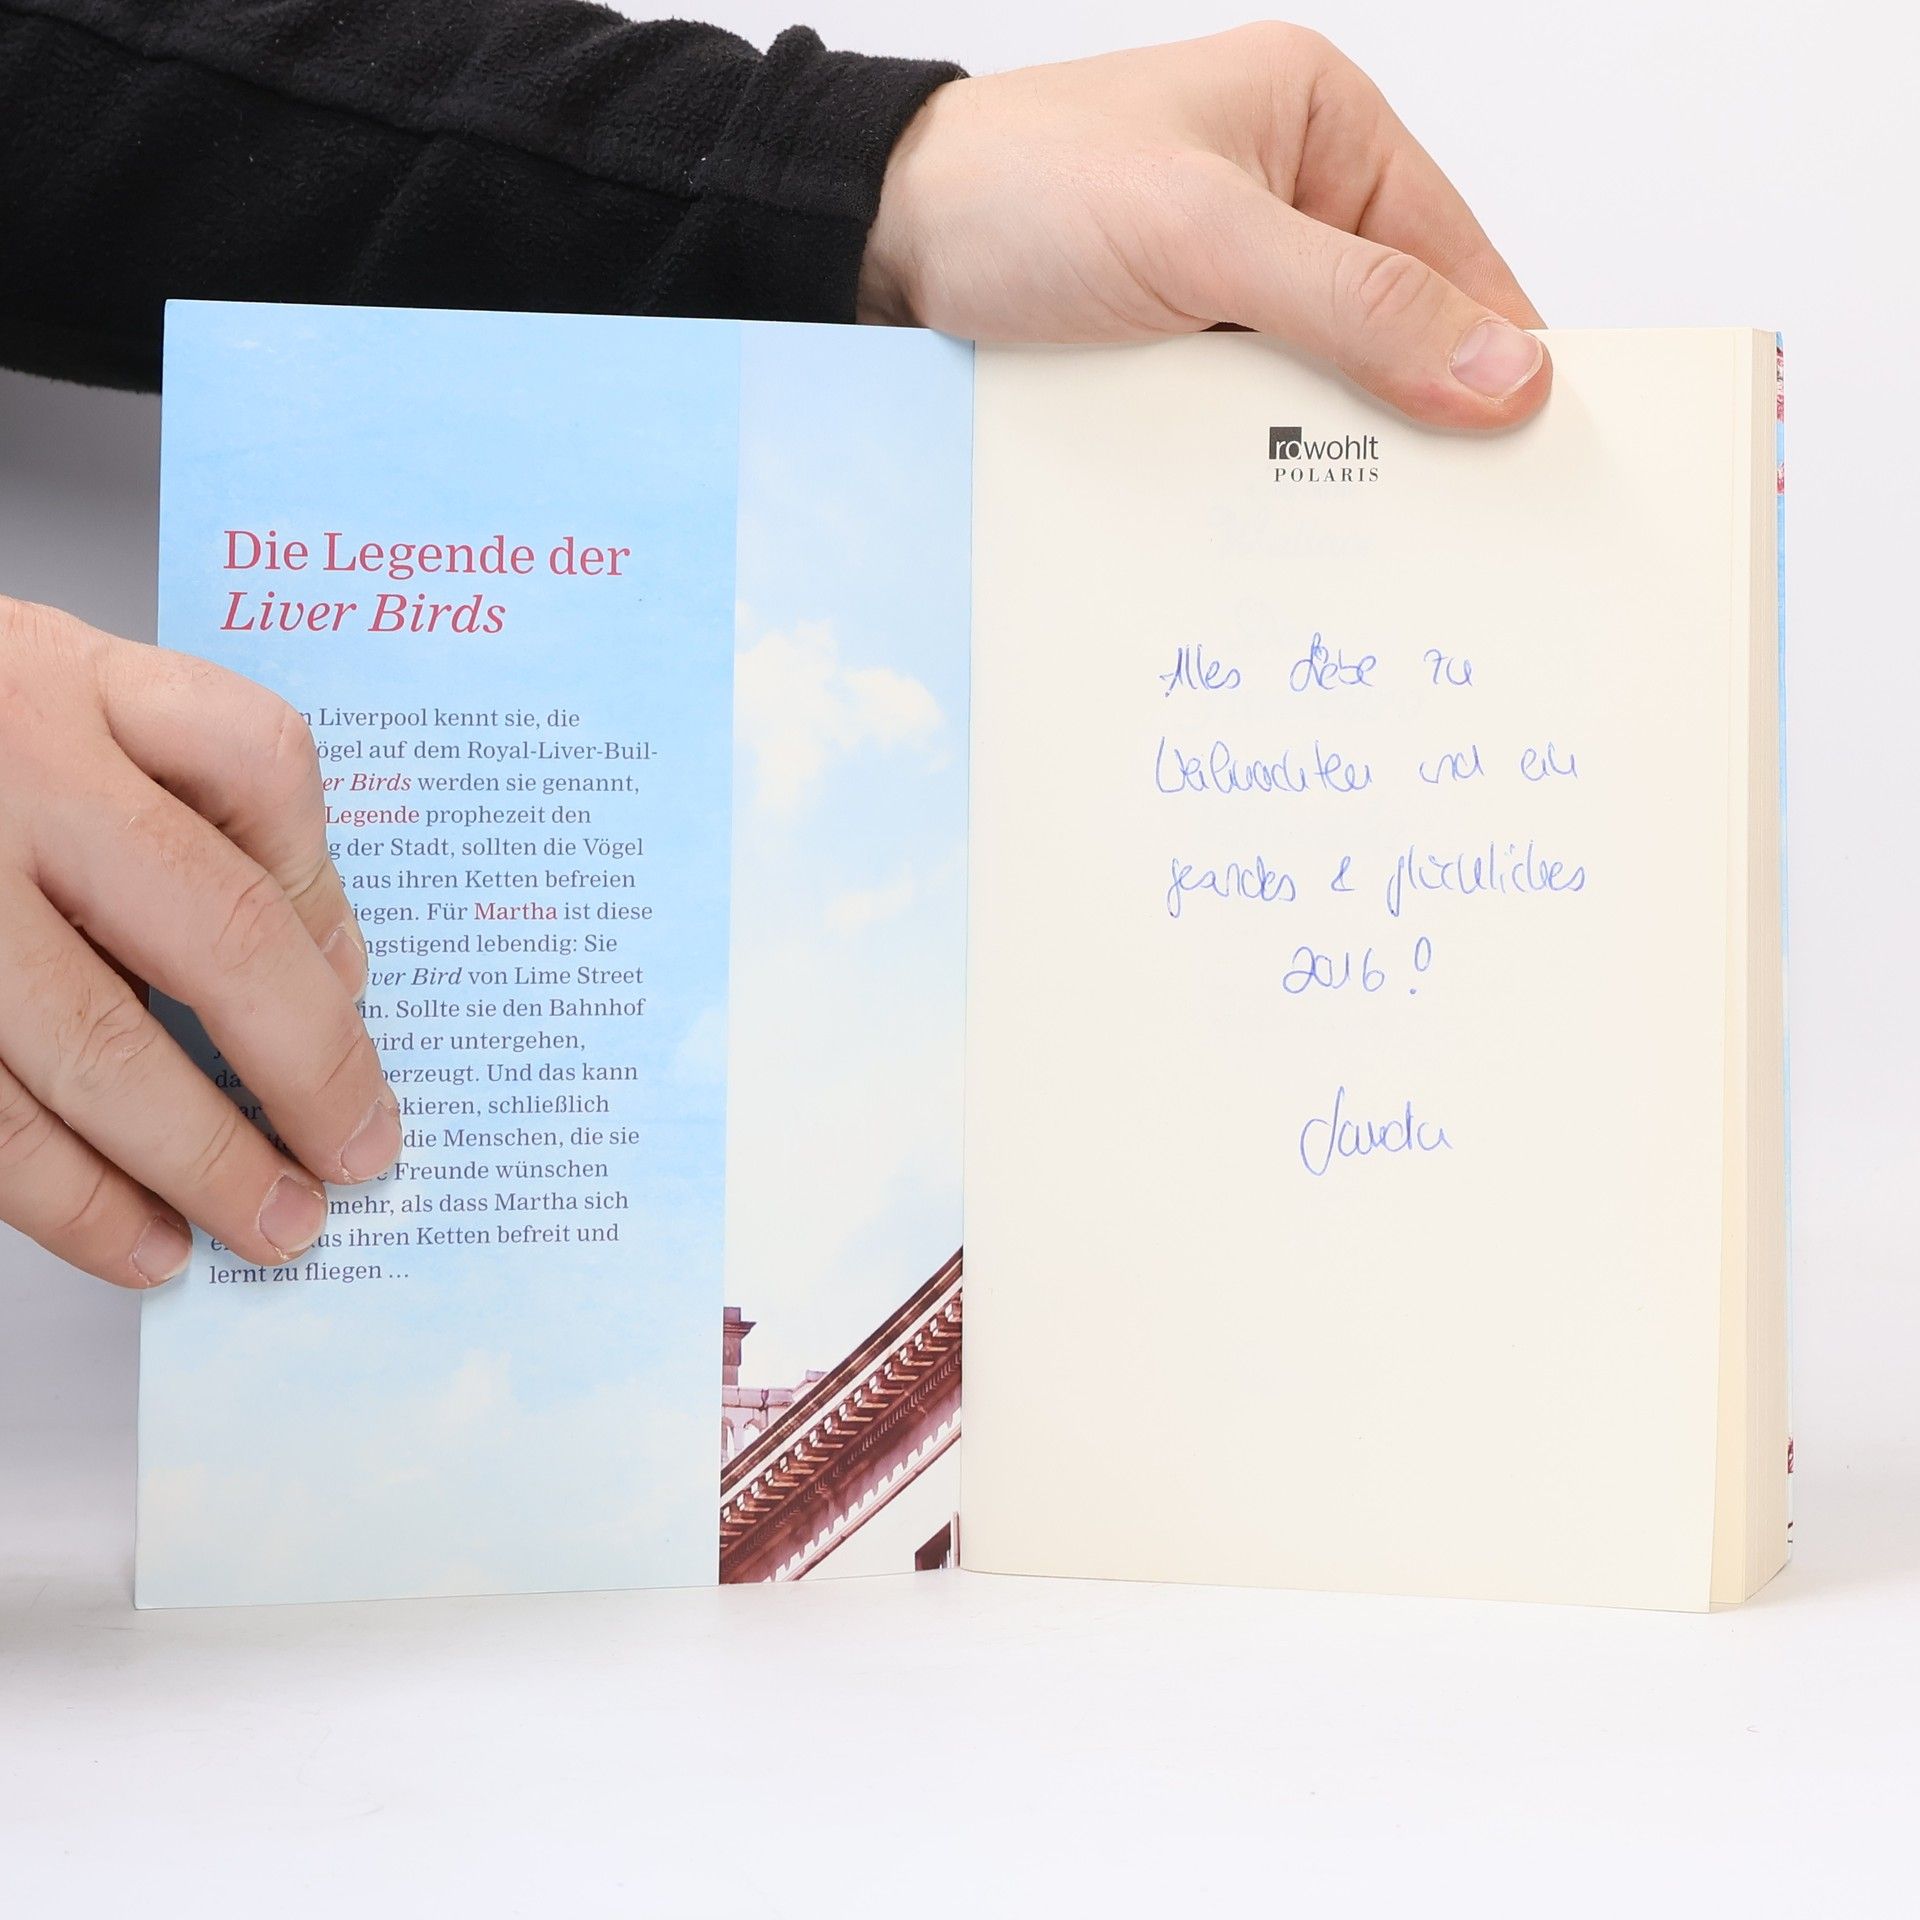 Die Legende der
Liver Birds
Liverpool kennt sie, die
auf dem Royal-Liver-Buil-
Birds werden sie genannt,
Legende prophezeit den
der Stadt, sollten die Vögel
aus ihren Ketten befreien
Für Martha ist diese
lebendig: Sie
Bird von Lime Street
Sollte sie den Bahnhof
er untergehen,
Und das kann
schließlich
die Menschen, die sie
Freunde wünschen
mehr, als dass Martha sich
ihren Ketten befreit und
lernt zu fliegen ...
rowohlt
POLARIS
Alles Liebe zu
Weihnachten und ein
gesundes & glückliches
2016!
Sandra